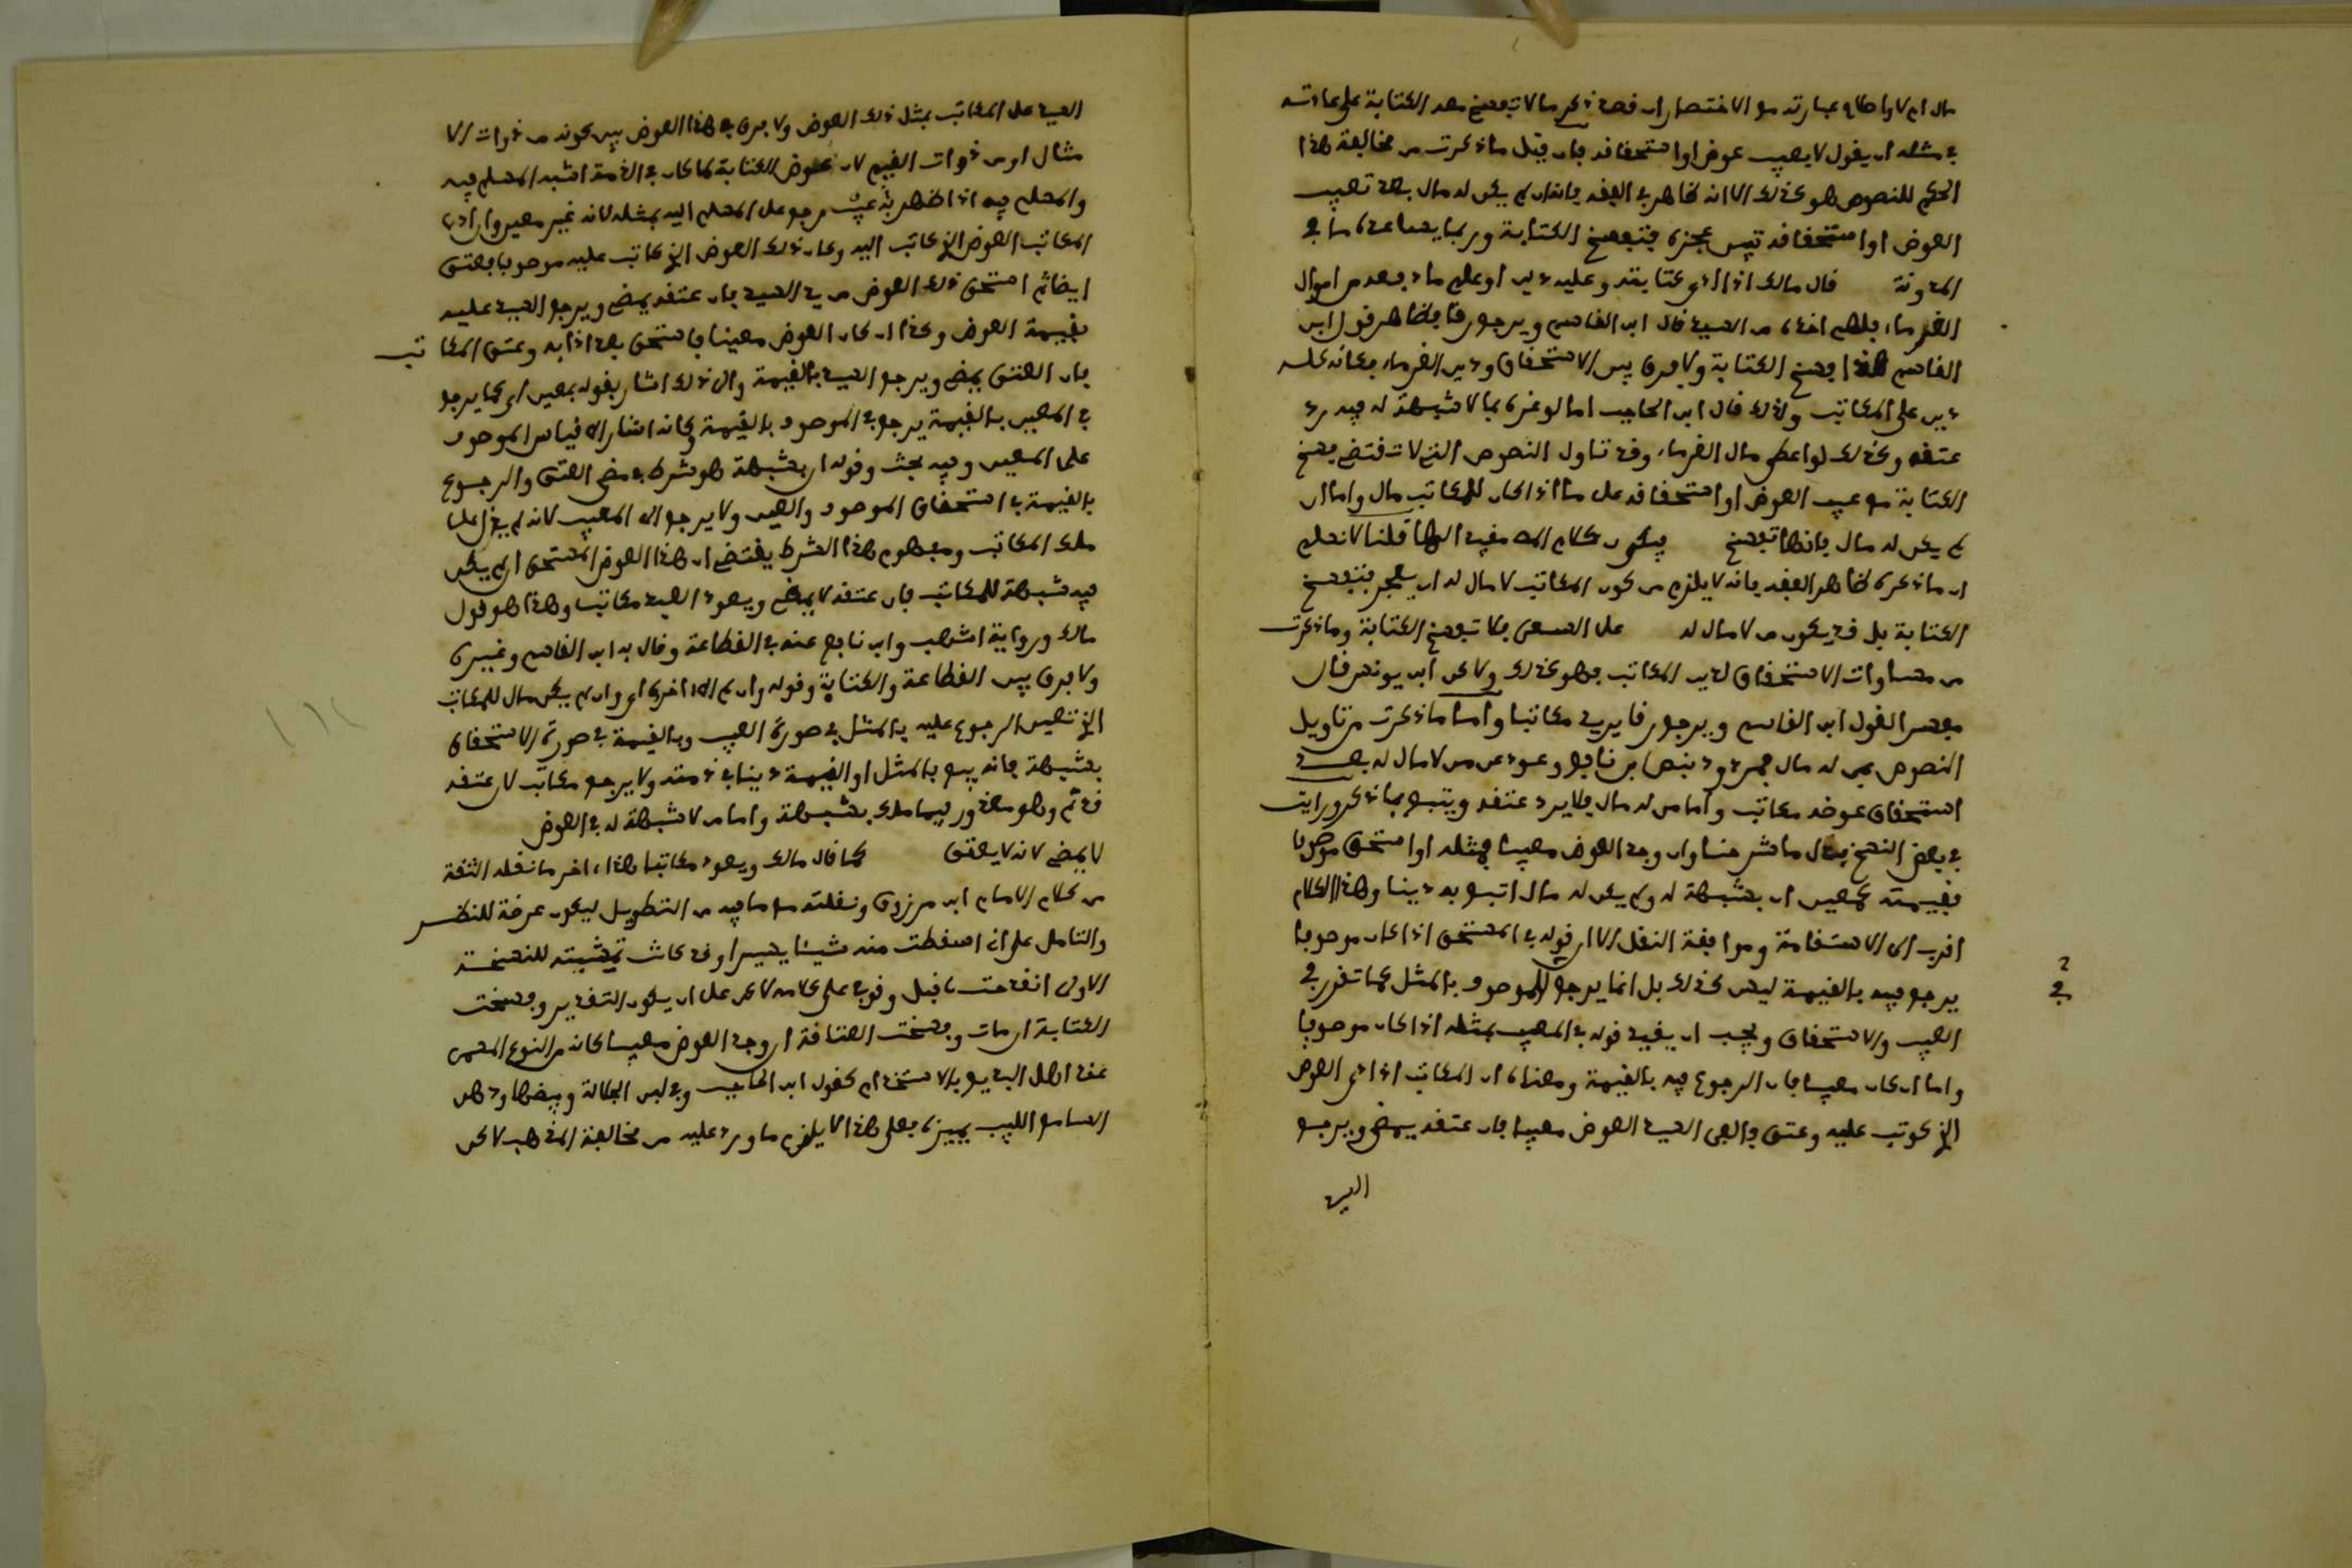 مال ام لا واطال عبارته مع الاختصار ان قصد ذكر ما لا تفسخ معه الكتابة على عادته
في مثله ان يقول لا بعيب عوض او استحقاقه فان قيل ما ذكرت من مخالفة هذا
الحكم للنصوص هو كذلك الا انه ظاهر في الفقه فانه ان لم يكن له مال بعد تعيب
العوض او استحقاقه تبين عجزه فتنفسخ الكتابة وربما يساعده ما في
المدونة قال مالك اذا ادى كتابته وعليه دين او علم ما دفعه من اموال
الغرماء فلهم اخذه من السيد قال ابن القاسم ويرجع رقا فظاهر قول ابن
القاسم هذا فسخ الكتابة ولا فرق بين الاستحقاق ودين الغرماء فكانه كله
دين على المكاتب ولذلك قال ابن الحاجب اما لو غره بما لا شبهة له فيه رد
عتقه وكذلك لو اعطى مال الغرماء وقد تناول النصوص التي لا تقتضي فسخ
الكتابة مع عيب العوض او استحقاقه على ما اذا كان للمكاتب مال واما ان
لم يكن له مال فانها تفسخ فيكون كلام المص مقيد الها قلنا لا نعلم
ان ما ذكره ظاهر الفقه فانه لا يلزم من كون المكاتب لا مال له ان يعجز فتنفسخ
الكتابة بل قد يكون من لا مال له على السعي فلا تفسخ الكتابة وما ذكرت
من مساوات الاستحقاق لدين المكاتب فهو كذلك ولاكن ابن يونس قال
مفسرا لقول ابن القاسم ويرجع رقا يريد مكاتبا واما ما ذكرت من تاويل
النصوص بمن له مال فمردود بنص ابن نافع وعود من لا مال له بعد
استحقاق عوضه مكاتب واما من له مال فلا يرد عتقه ويتبع بما ذكر ورايت
في بعض النسخ بدل ما شرحنا وان وجد العوض معيبا فمثله او استحق موصوفا
فقيمته كمعين ان بشبهة له ولم يكن له مال اتبع به دينا وهذا الكلام
اقرب الى الاستقامة وموافقة النقل الا ان قوله في المستحق اذا كان موصوفا
يرجع فيه بالقيمة ليس كذلك بل انما يرجع في الموصوف بالمثل كما تقرر في
العيب والاستحقاق ويجب ان يقيد قوله في المعيب بمثله اذا كان موصوفا
واما ان كان معيبا فان الرجوع فيه بالقيمة ومعناه ان المكاتب اذا ادى العوض
الذي كوتب عليه وعتق والفى السيد العوض معيبا فان عتقه يمضي ويرجع
السيد
السيد على المكاتب بمثل ذلك العوض ولا فرق في هذا العوض بين كونه من ذوات الا
مثال او من ذوات القيم لان عوض الكتابة لما كان في الذمة اشبه المسلم فيه
والمسلم فيه اذا ظهر به عيب رجع على المسلم اليه بمثله لانه غير معين وان ادى
المكاتب العوض الذي كاتب اليه وكان ذلك العوض الذي كاتب عليه موصوفا فعتق
ايضا ثم استحق ذلك العوض من يد السيد فان عتقه يمضي ويرجع السيد عليه
بقيمة العوض وكذا ان كان العوض معينا فاستحق بعد اذا به وعتق المكاتب
فان العتق يمضي ويرجع السيد بالقيمة والى ذلك اشار بقوله بمعين اي كما يرجع
في المعين بالقيمة يرجع في الموصوف بالقيمة وكانه اشار الى قياس الموصوف
على المعين وفيه بحث وقوله ان بشبهة هو شرط في مضي العتق والرجوع
بالقيمة في استحقاق الموصوف والمعين ولا يرجع الى المعيب لانه لم يزل على
ملك المكاتب ومفهوم هذا الشرط يقتضي ان هذا العوض المستحق ان لم يكن
فيه شبهة للمكاتب فان عتقه لا يمضي ويعود العبد مكاتبا وهذا هو قول
مالك ورواية اشهب وابن نافع عنه في القطاعة وقال به ابن القاسم وغيره
ولا فرق بين القطاعة والكتابة وقوله وان لم الى اخره اي وان لم يكن مال للمكاتب
الذي تعين الرجوع عليه بالمثل في صورة العيب وبالقيمة في صورة الاستحقاق
بشبهة فانه يبيع بالمثل او القيمة دينا في ذمته ولا يرجع مكاتب لان عتقه
قد تم وهو معذور فيما ملك بشبهة واما من لا شبهة له في العوض
لا يمضي لانه لا يعتق كما قال مالك ويعود مكاتبا هذا اخر ما نقله الثقة
من كلام الامام ابن مرزوق ونقلته مع ما فيه من التطويل ليكون عرضة للنظر
والتامل على اني اسقطت منه شيئا يسيرا وقد كاش تمشيته للنسخة
الاولى انقدحت قبل وقوفي على كلامه لاكن على ان يكون التقدير وفسخت
الكتابة ان مات وفسخت العتاقة ان وجد العوض معيبا كانه من النوع المسمى
عند اهل البديع بالاستخدام كقول ابن الحاجب وفي لبن الجلالة وبيضها
السامع اللبيب يميزه فعلى هذا لا يلزم ما ورد عليه من مخالفة المذهب لاكن